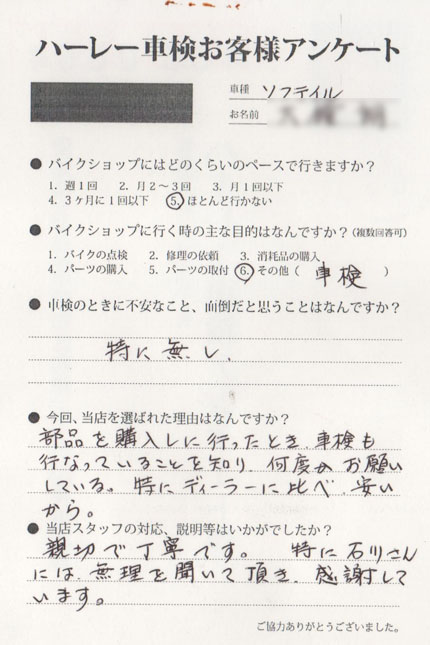 ハーレー車検お客様アンケート
車種 ソフテイル
お名前
● バイクショップにはどのくらいのペースで行きますか？
1. 週1回 2. 月2～3回 3. 月1回以下
4. 3ヶ月に1回以下 5. ほとんど行かない
● バイクショップに行く時の主な目的はなんですか？（複数回答可）
1. バイクの点検 2. 修理の依頼 3. 消耗品の購入
4. パーツの購入 5. パーツの取付 6. その他（ 車検 ）
● 車検のときに不安なこと、面倒だと思うことはなんですか？
特に無し、
● 今回、当店を選ばれた理由はなんですか？
部品を購入しに行ったとき、車検も
行なっていることを知り、何度かお願い
している。特にディーラーに比べ、安い
から。
● 当店スタッフの対応、説明等はいかがでしたか？
親切で丁寧です。 特に石川さん
には、無理を聞いて頂き、感謝して
います。
ご協力ありがとうございました。